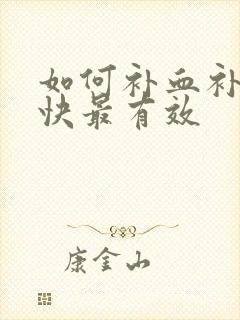 如何补血补
快最有效
康金山